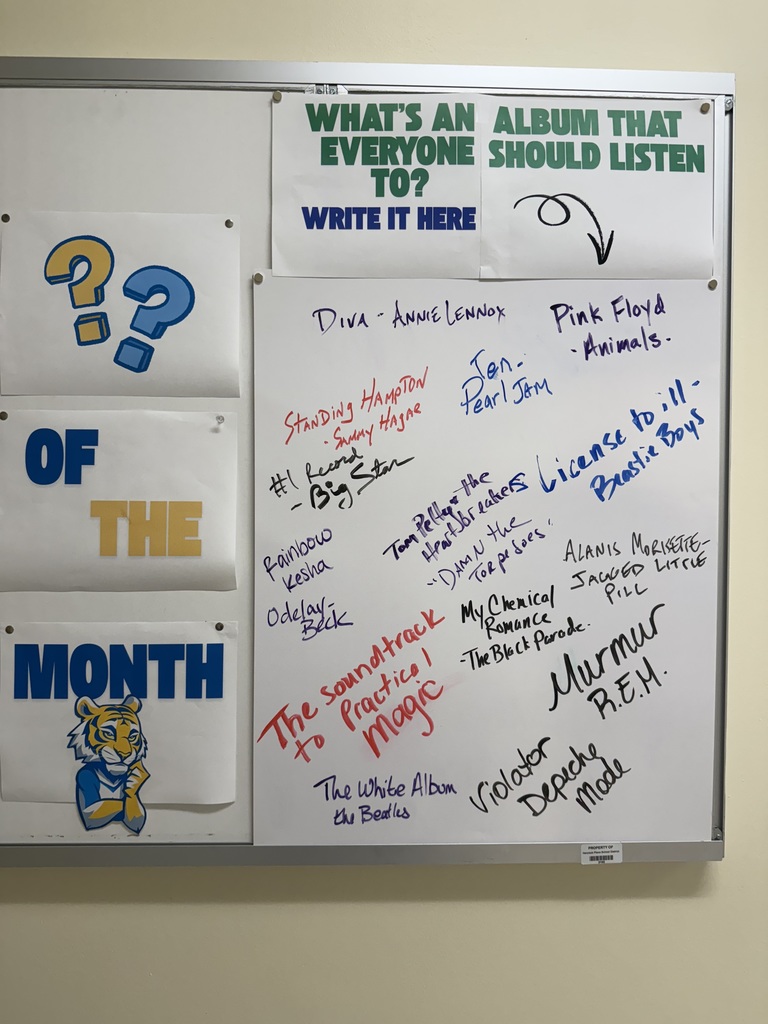 WHAT'S AN ALBUM THAT
EVERYONE SHOULD LISTEN
TO?
WRITE IT HERE
??
OF
THE
MONTH
DIVA - ANNIE LENNOX
Pink Floyd
- Animals.
Ten -
Pearl JAM
STANDING HAMPTON
- SAMMY HAGAR
#1 Record
- Big Star
License to ill -
Beastie Boys
Tom Petty & the
Heartbreakers
"DAMN the
TORPEDOES"
Rainbow
Kesha
Odelay -
Beck
ALANIS MORISETTE -
JAGGED LITTLE
PILL
My Chemical
Romance
- The Black Parade.
The soundtrack
to Practical
Magic
Murmur
R.E.M.
The White Album
the Beatles
Violator
Depeche
Mode
PROPERTY OF